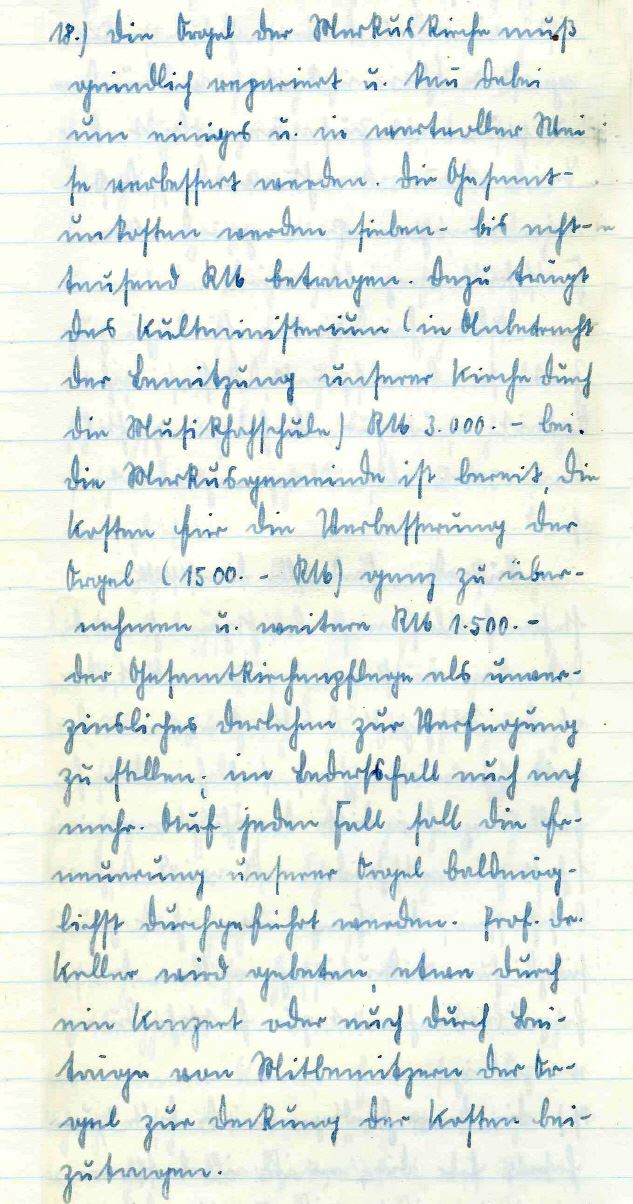 18.) Die Orgel der Markuskirche muß
gründlich repariert u. kan dabei
um einiges u. in wertvoller Wei-
se verbessert werden. Die Gesamt-
unkosten werden sieben- bis acht-
tausend RM betragen. Dazu trägt
das Kultministerium (in Anbetracht
der Benützung unserer Kirche durch
die Musikhochschule) RM 3.000.- bei.
Die Markusgemeinde ist bereit, die
Kosten für die Verbesserung der
Orgel (1500.- RM) ganz zu über-
nehmen u. weitere RM 1.500.-
der Gesamtkirchenpflege als unver-
zinsliches Darlehen zur Verfügung
zu stellen; im Bedarfsfall auch noch
mehr. Auf jeden Fall soll die Er-
neuerung unserer Orgel baldmög-
lichst durchgeführt werden. Prof. Dr.
Keller wird gebeten, etwa durch
ein Konzert oder auch durch Bei-
träge von Mitbenützern der Or-
gel zur Deckung der Kosten bei-
zutragen.